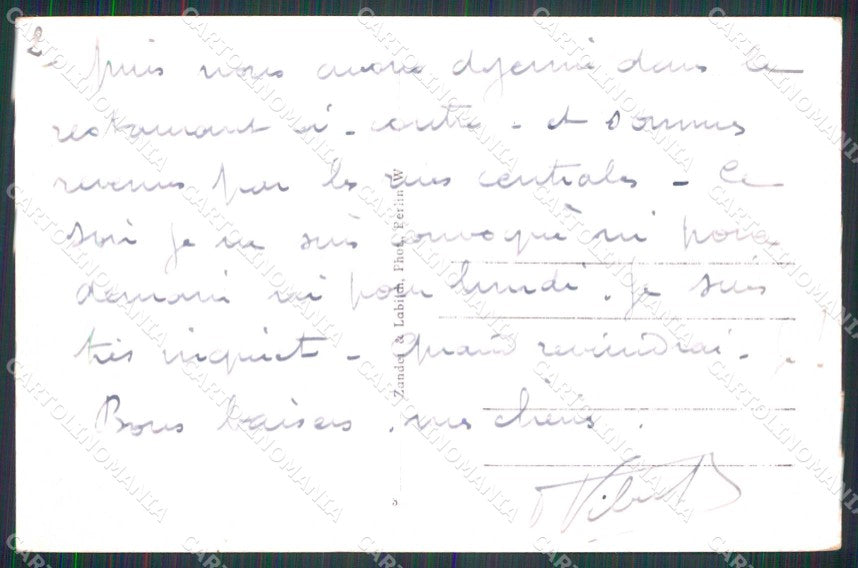 2
puis nous avons dejeuné dans le
restaurant ci-contre - et sommes
revenus par les rues centrales - Ce
soir je ne suis convoqué ni pour
demain ni pour lundi. Je suis
très inquiet - Quand reviendrai-je?
Bons baisers, mes chéris.
Zander & Labisch, Phot., Berlin W
CARTOLINOMANIA